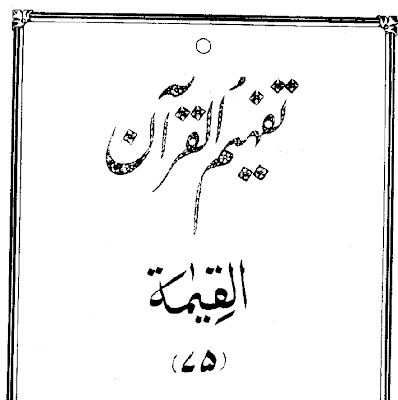 تفہیم القرآن
القیٰمۃ
(۷۵)